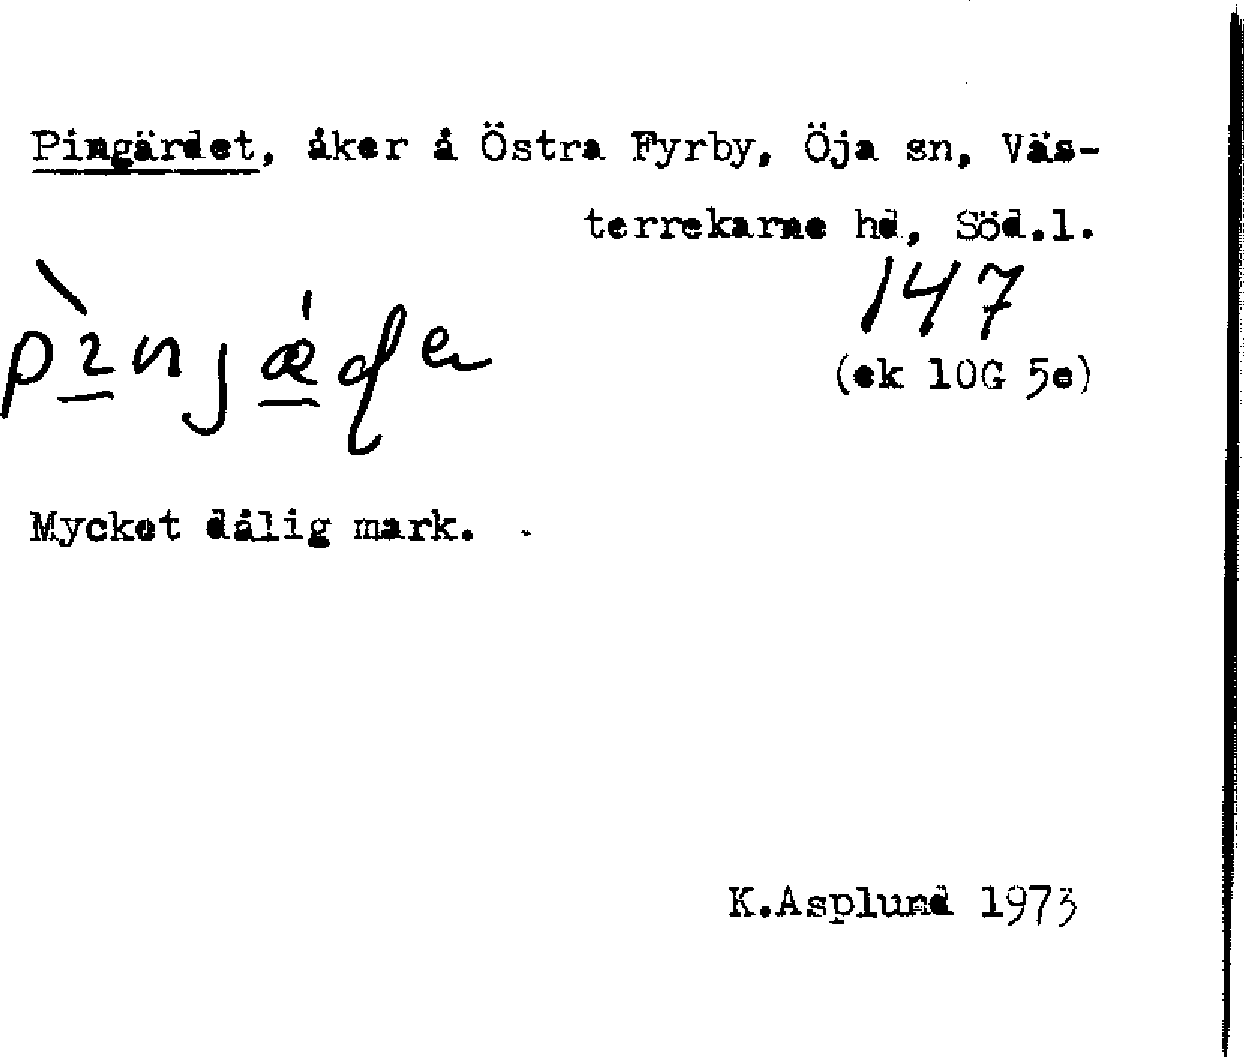 Pingärdet, åker å Östra Fyrby, Öja sn, Väs-
terrekarne hd, Söd.l.
147
(ek 10G 5e)
Mycket dålig mark.
K.Asplund 1973